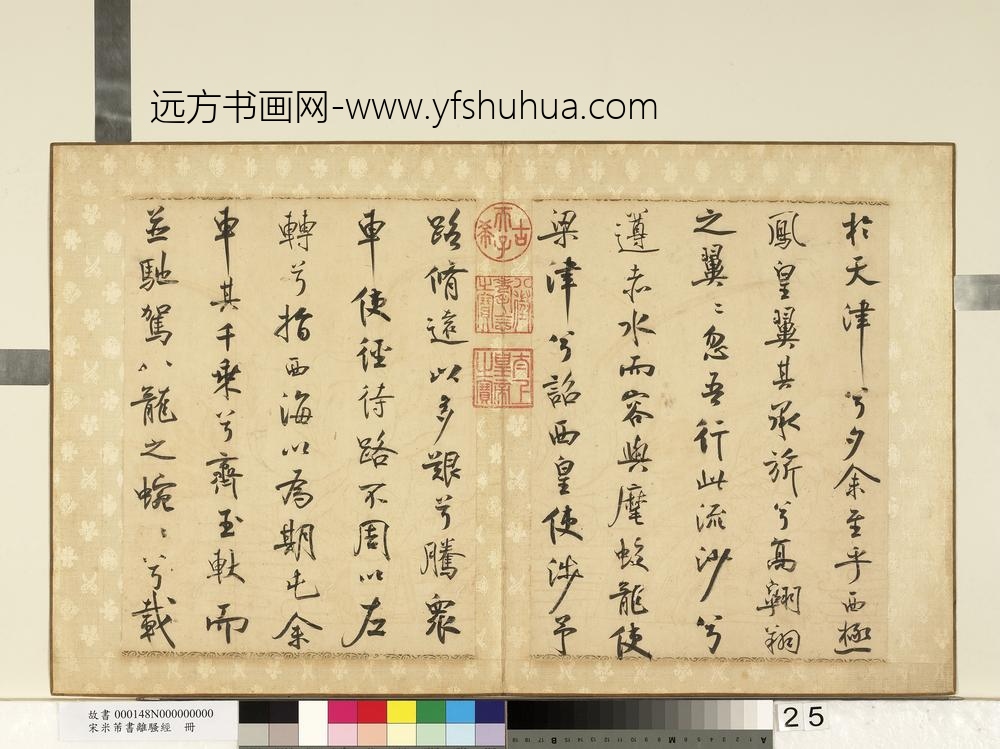 远方书画网-www.yfshuhua.com
於天津兮夕余至乎西極
鳳皇翼其承旂兮高翱翔
之翼〻忽吾行此流沙兮
遵赤水而容與麾蛟龍使
梁津兮詔西皇使涉予
路脩遠以多艱兮騰衆
車使徑待路不周以左
轉兮指西海以為期屯余
車其千乘兮齊玉軑而
並馳駕八龍之蜿〻兮載
古希天子
八徵耄念之寶
太上皇帝之寶
故書 000148N000000000
宋米芾書離騷經 冊
25